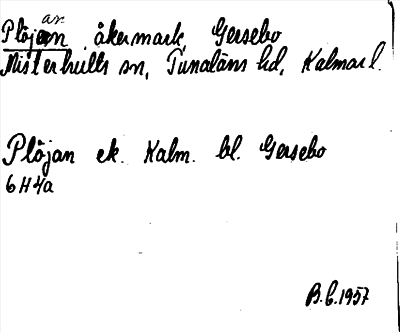 Plöjan, åkermark, Gersebo
Misterhults sn, Tunaläns hd, Kalmar l.
Plöjan ek. Kalm. bl. Gersebo
6H4a
B.G.1957